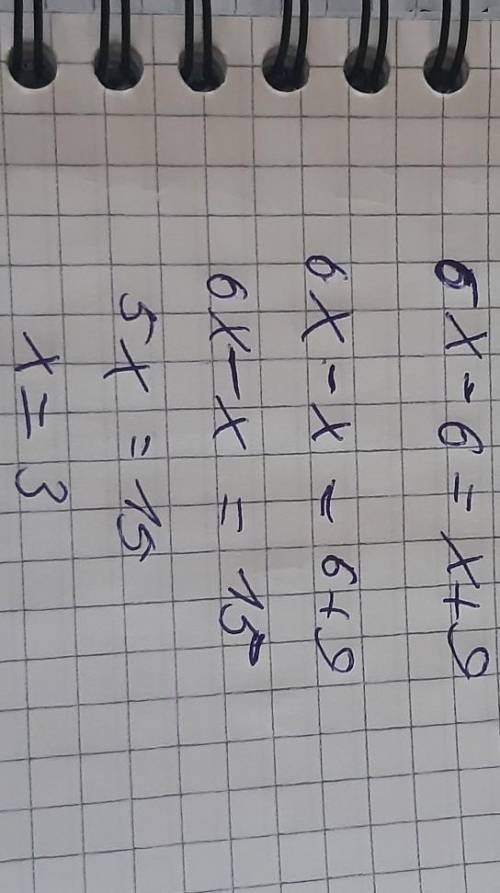 6x - 6 = x + 9
6x - x = 6 + 9
6x - x = 15
5x = 15
x = 3